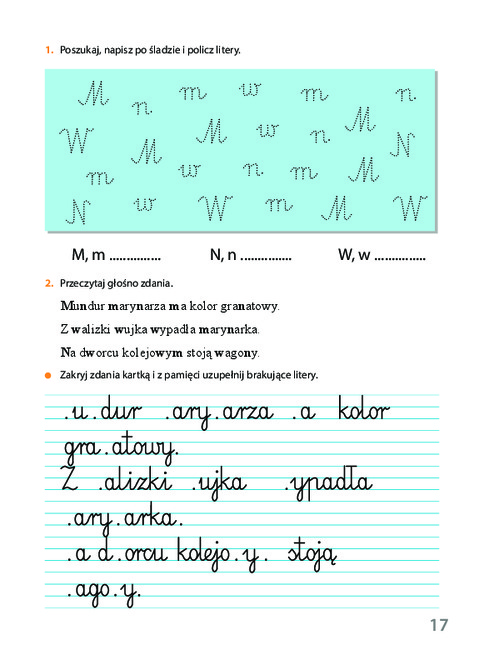 1. Poszukaj, napisz po śladzie i policz litery.
M n m w m n
W M M w n M N
m w n m M
N w W m M W
M, m ............... N, n ............... W, w ...............
2. Przeczytaj głośno zdania.
Mundur marynarza ma kolor granatowy.
Z walizki wujka wypadła marynarka.
Na dworcu kolejowym stoją wagony.
● Zakryj zdania kartką i z pamięci uzupełnij brakujące litery.
.u.dur .ary.arza .a kolor
gra.atowy.
Z .alizki .ujka .ypadła
.ary.arka.
.a d.orcu kolejo.y. stoją
.ago.y.
17